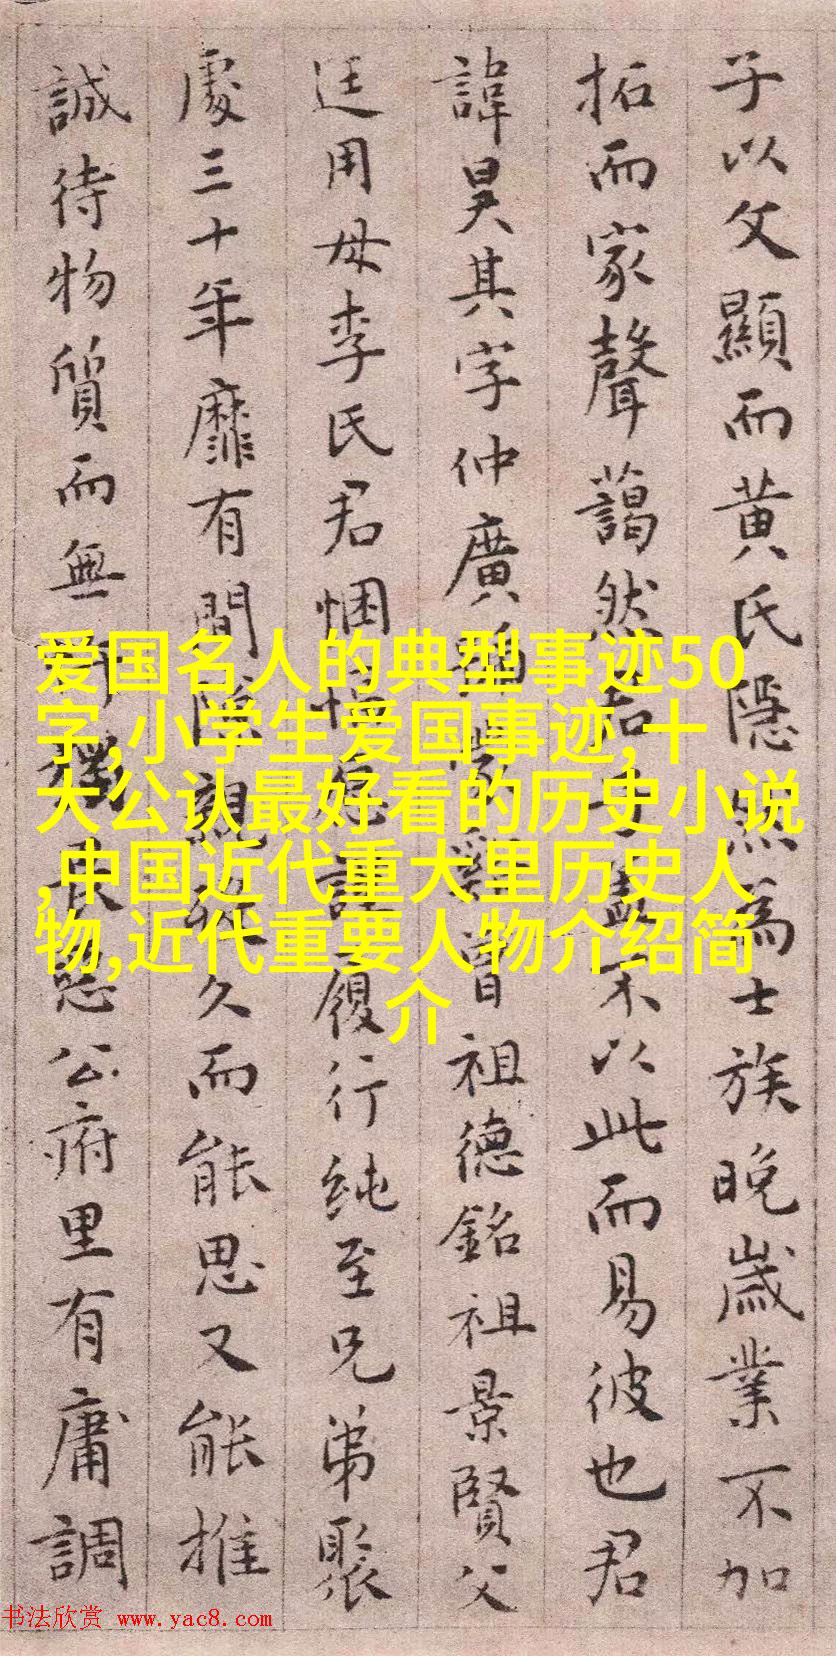 子以父顯而黄氏隱然為士族晚歲業不加
拓而家聲藹然君子蓋不以此而易彼也君
諱昊其字仲廣曾祖德銘祖景賢父
廷用母李氏君悃愊愿謹履行純至兄弟聚
處三十年靡有間隙親久而能思又能推
誠待物質而無公府里有庸調
爱国名人的典型事迹50
字,小学生爱国事迹,十
大公认最好看的历史小说
,中国近代重大里历史人
物,近代重要人物介绍简
介
书法欣赏 www.yac8.com